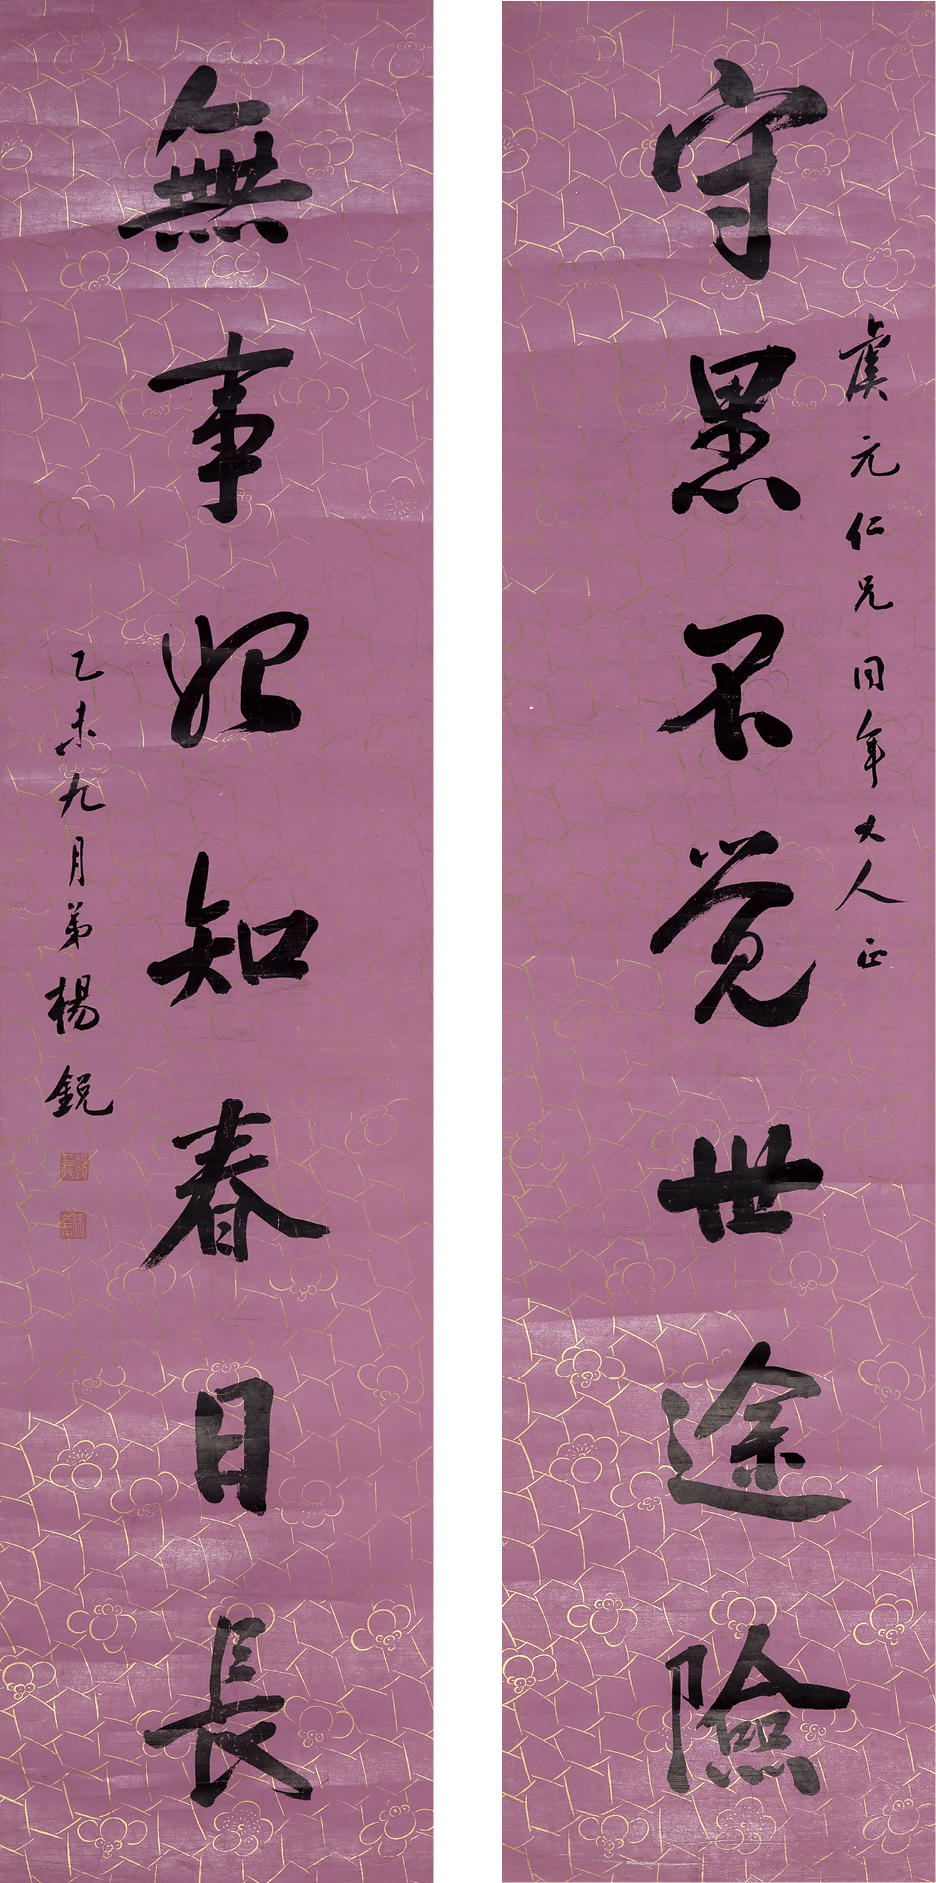 虞元仁兄同年大人正
守黑不觉世途險
無事始知春日長
乙未九月弟楊銳